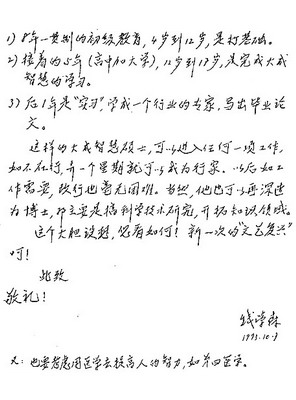 1) 8年一贯制的初级教育，4岁到12岁，是打基础。
2) 接着的5年（高中加大学），12岁到17岁，是完成大成
智慧的学习。
3) 后1年是“实习”，学成一个行业的专家，写出毕业论
文。
这样的大成智慧硕士，可以进入任何一项工作，
如不在行，弄一个星期就可以成为行家。以后如工
作需要，改行也毫无困难。当然，他也可以再深造
为博士，那主要是搞科学技术研究，开拓知识领域。
这个大胆设想，您看如何？新一次的“文艺复兴”
呵！
此致
敬礼！
钱学森
1993.10.7
又：也要考虑用医学去提高人的智力，如第四医学。